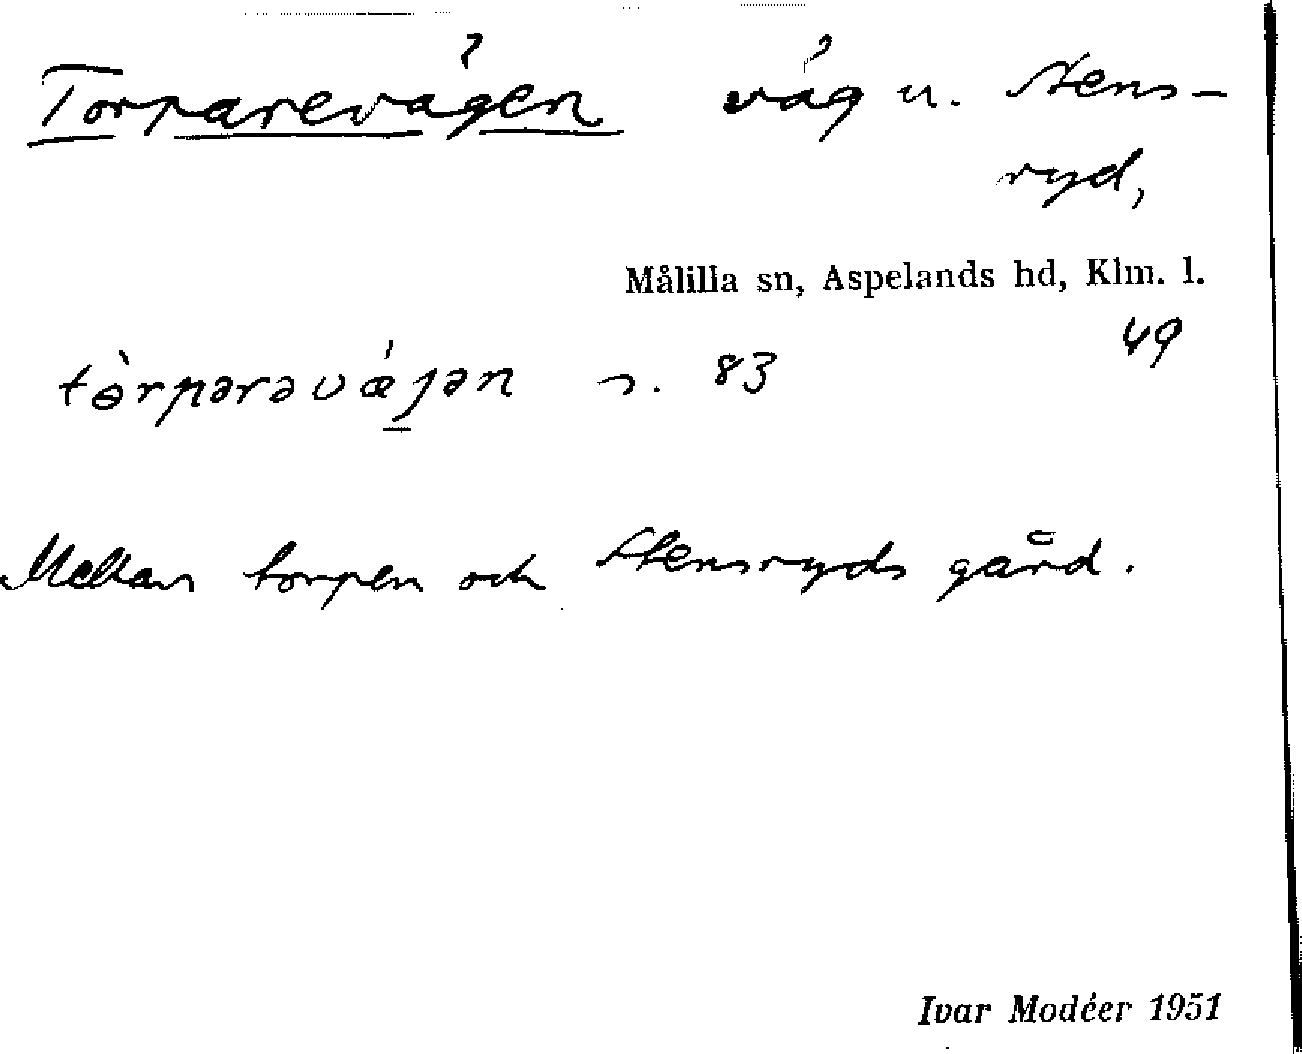 Torparevägen väg u. Stens-
ryd,
Målilla sn, Aspelands hd, Klm. l.
49
tòrpərəvǽjən s. 83
Mellan torpen och Stensryds gård.
Ivar Modéer 1951